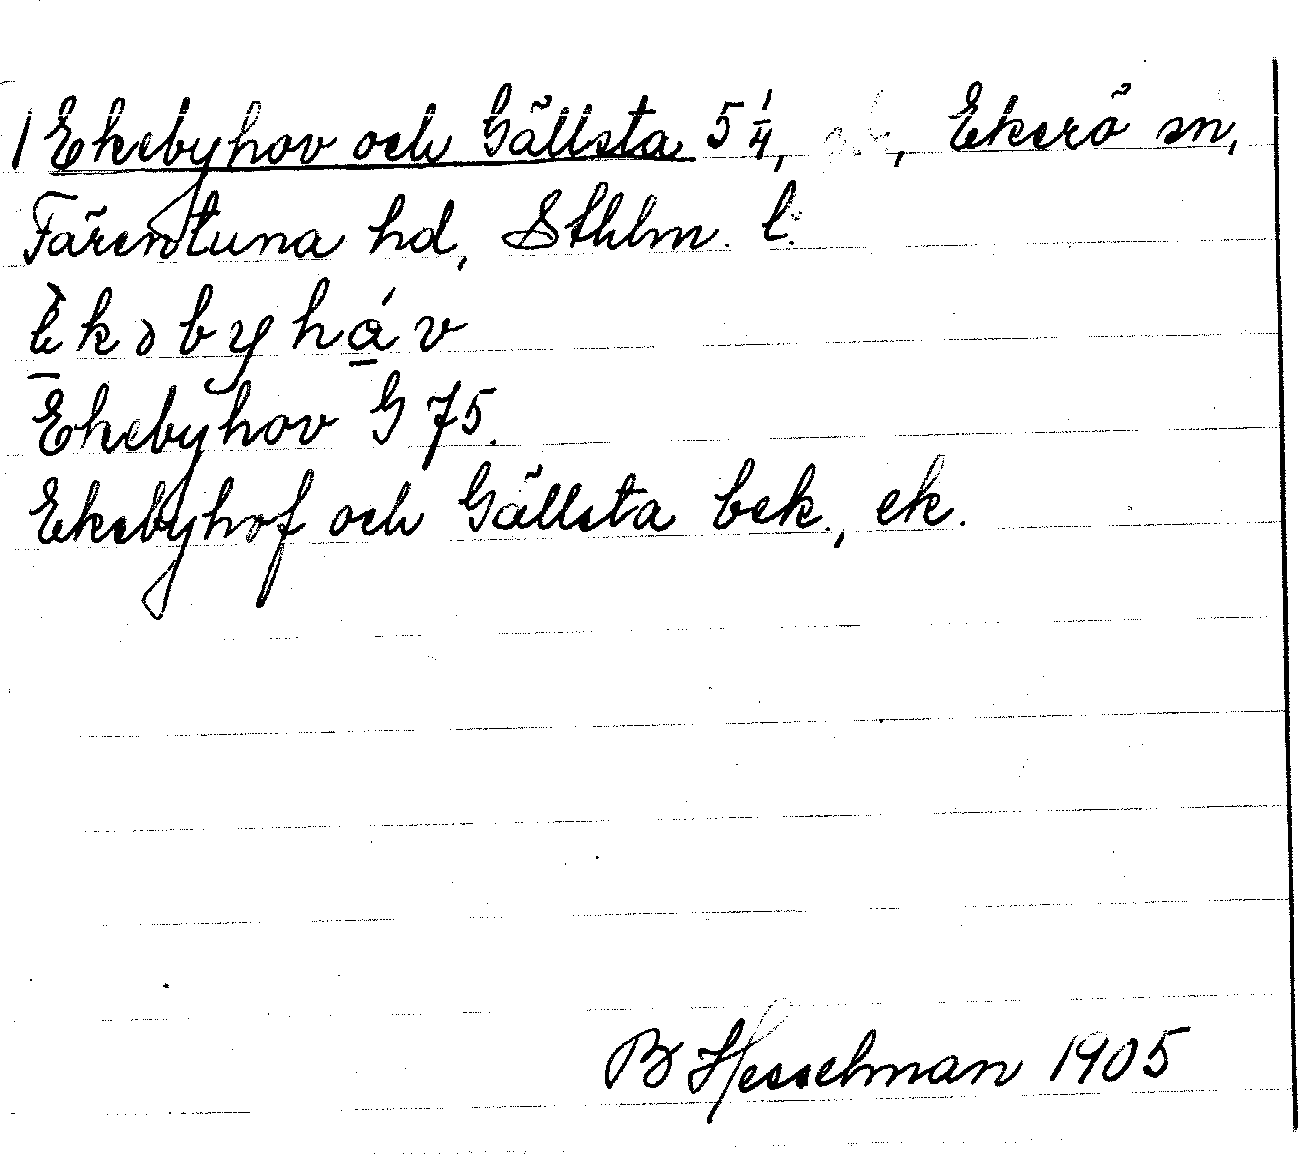 1 Ekebyhov och Gällsta 5 1/4, , Ekerö sn,
Färentuna hd, Sthlm. l.
Ekebyhov G 75.
Ekebyhof och Gällsta bek., ek.
B Hesselman 1905